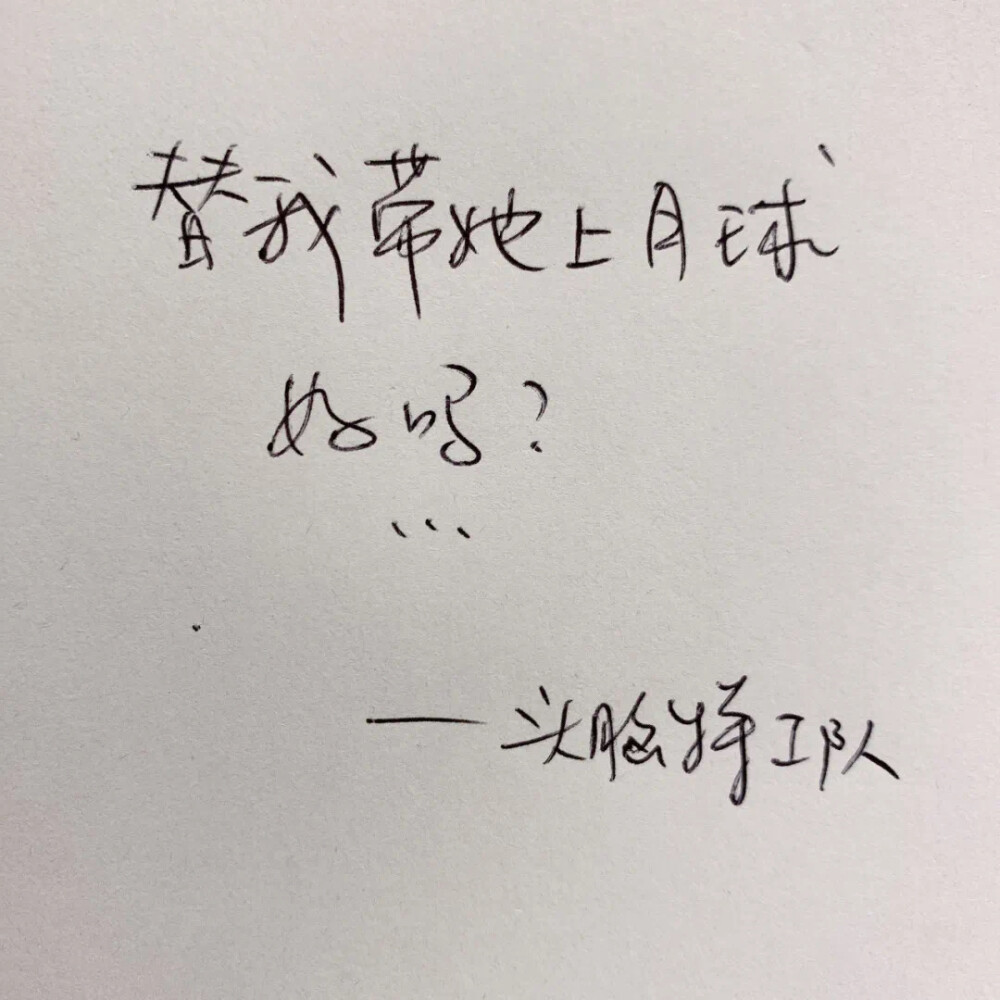 替我带她上月球
好吗?
...
——头脑特工队